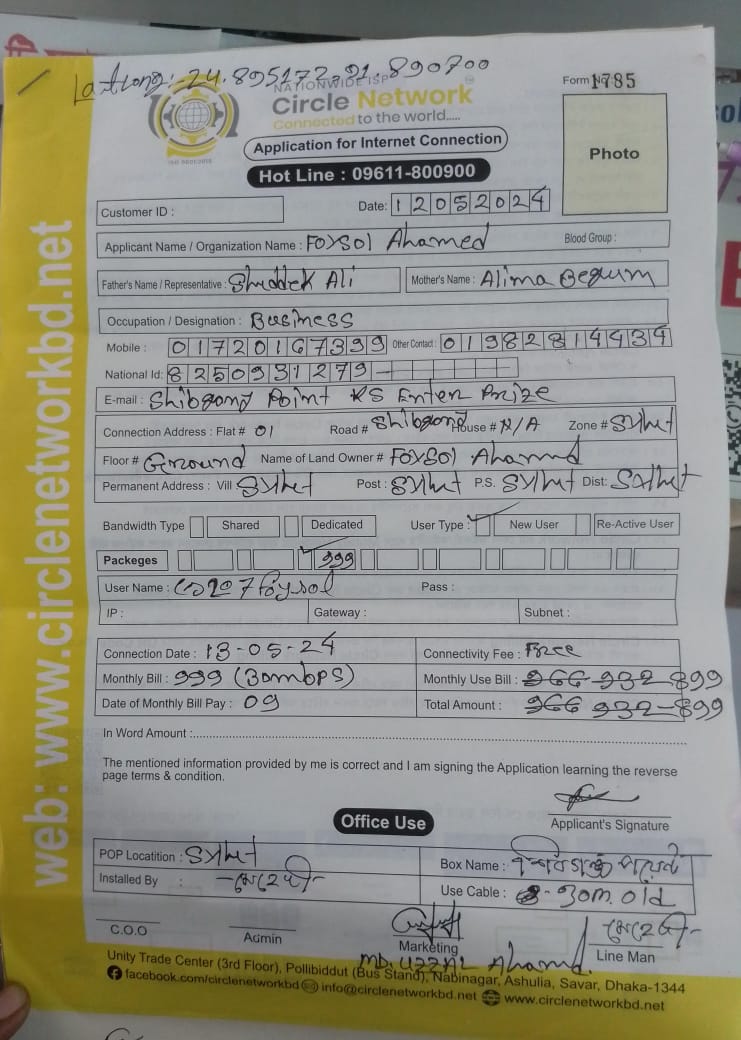 Lat Long: 24.895172, 91.890700
NATIONWIDE ISP
Form No 1785
Circle Network
Connected to the world.....
Application for Internet Connection
Photo
Hot Line : 09611-800900
Customer ID :
Date: 12052024
Applicant Name / Organization Name : Foysol Ahamed Blood Group :
Father's Name / Representative : Shiddek Ali Mother's Name : Alima Begum
Occupation / Designation : Business
Mobile : 01720167399 Other Contact : 01982814434
National Id: 8250931279-
E-mail : Shibgong Point KS Enter Prize
Connection Address : Flat # 01 Road # Shibgong House # N/A Zone # Sylhet
Floor # Ground Name of Land Owner # Foysol Ahamd
Permanent Address : Vill Sylhet Post : Sylhet P.S. Sylhet Dist: Sylhet
Bandwidth Type Shared Dedicated User Type : New User Re-Active User
Packeges 999
User Name : Pass :
IP : Gateway : Subnet :
Connection Date : 13-05-24 Connectivity Fee : Free
Monthly Bill : 999 (30mbps) Monthly Use Bill : 966 932 899
Date of Monthly Bill Pay : 09 Total Amount : 966 932 - 899
In Word Amount :
The mentioned information provided by me is correct and I am signing the Application learning the reverse
page terms & condition.
Applicant's Signature
Office Use
POP Locatition : Sylhet Box Name : শিবগঞ্জ পয়েন্ট
Installed By : Use Cable : 30m old
C.O.O Admin Marketing Line Man
MD. UZZAL Ahamd.
Unity Trade Center (3rd Floor), Pollibiddut (Bus Stand), Nabinagar, Ashulia, Savar, Dhaka-1344
facebook.com/circlenetworkbd info@circlenetworkbd.net www.circlenetworkbd.net
web: www.circlenetworkbd.net